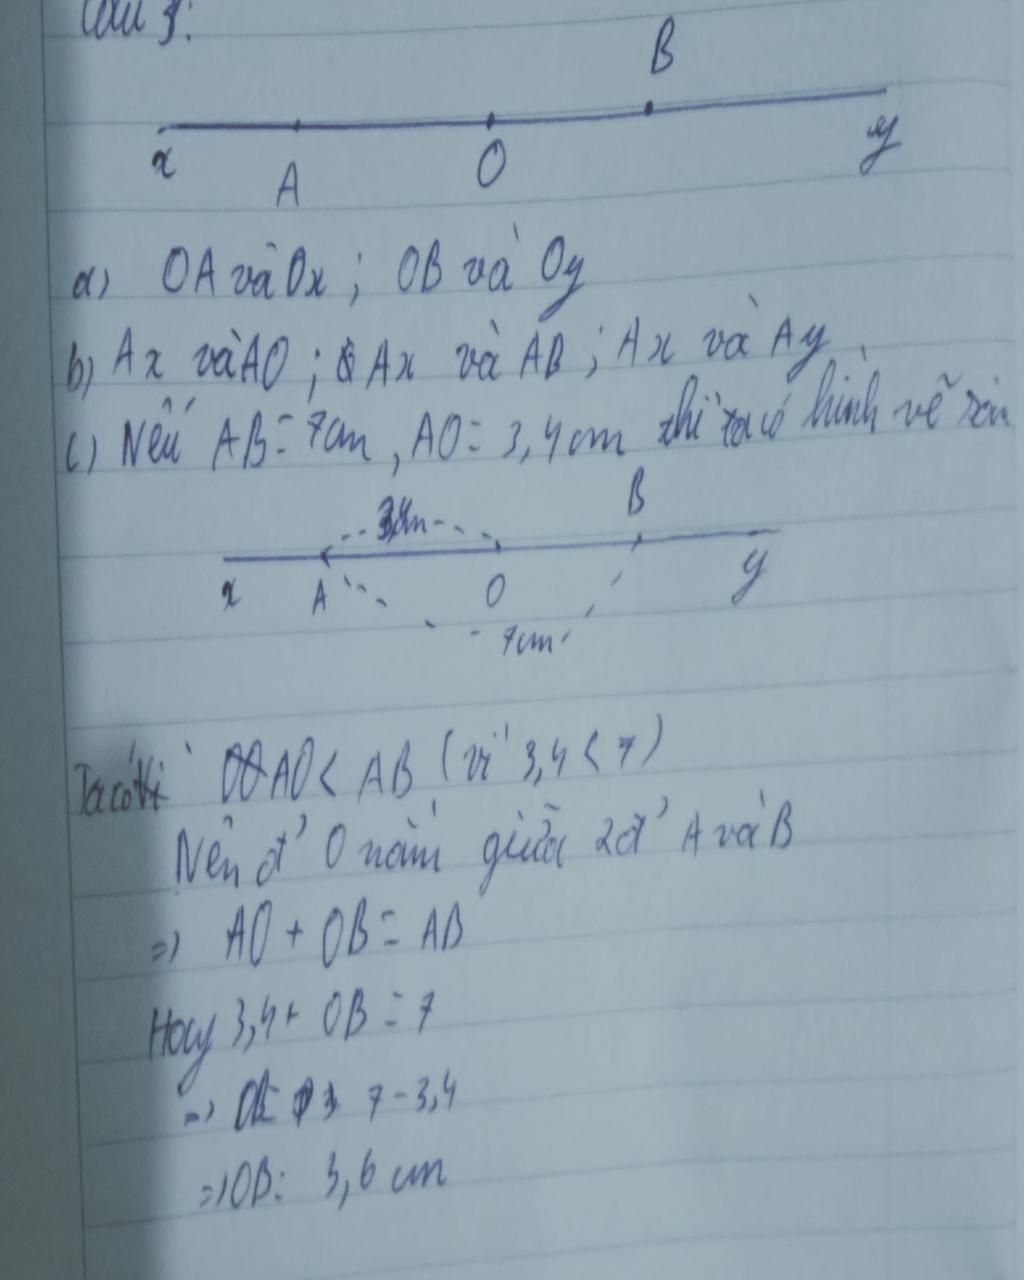 Câu 3:
B
x A O y
a) OA và Ox ; OB và Oy
b) Ax và AO ; Ax và AB ; Ax và Ay
c) Nếu AB = 7cm , AO = 3,4cm thì ta có hình vẽ
B
x A O y
7cm
Ta có Vì AO < AB ( vì 3,4 < 7 )
Nên đ' O nằm giữa 2đ' A và B
=> AO + OB = AB
Hay 3,4 + OB = 7
=> OB 7 - 3,4
=> OB: 3,6 cm